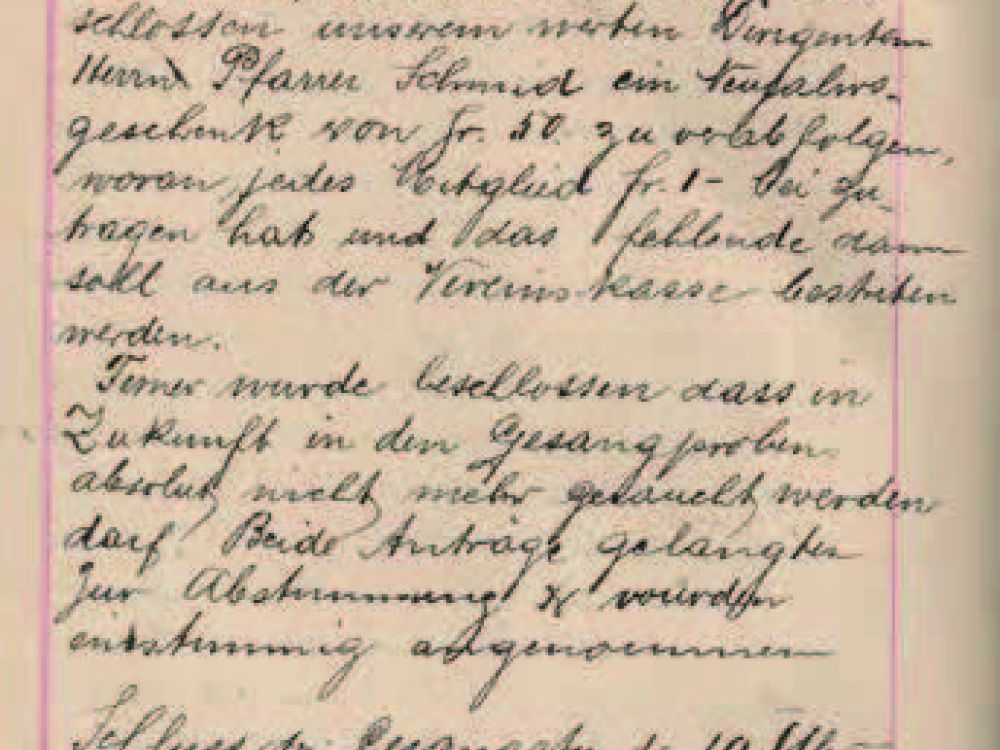 schlossen unserem werten Dirigenten
Herrn Pfarrer Schmid ein Neujahrs-
geschenk von fr. 50. zu verabfolgen,
woran jedes Mitglied fr. 1- bei zu-
tragen hat und das fehlende dann
soll aus der Vereins-kasse bestriten
werden.
Ferner wurde beschlossen dass in
Zukunft in den Gesangproben
absolut nicht mehr geraucht werden
darf. Beide Anträge gelangten
zur Abstimmung & wurden
einstimmig angenommen
Schluss der